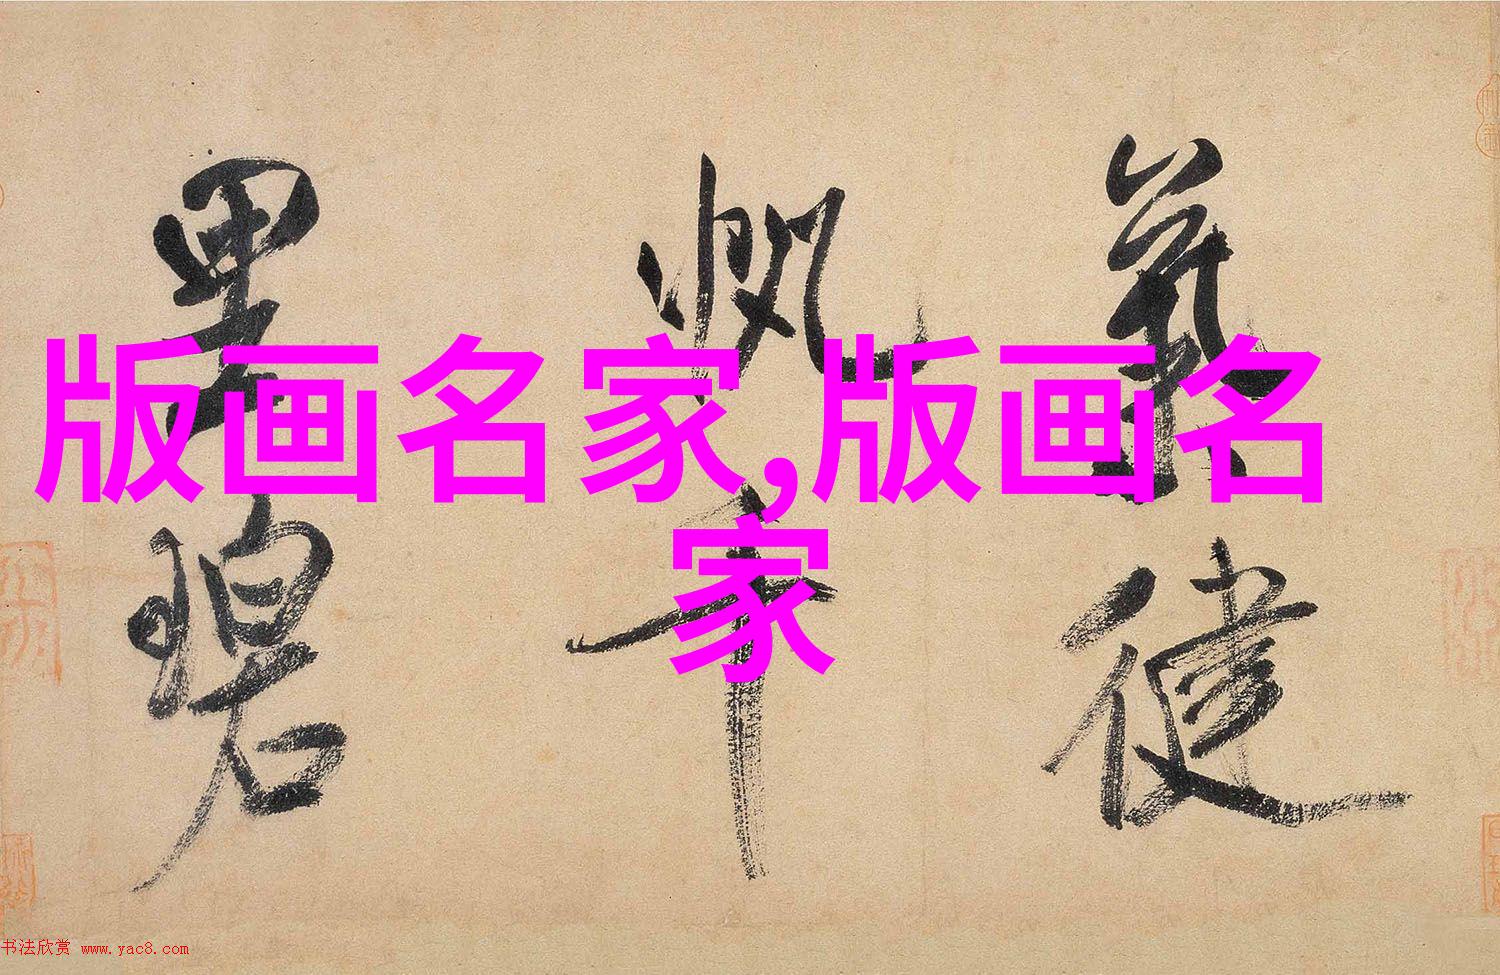 氣健
帆千
里碧
版画名家,版画名
家
书法欣赏 www.yac8.com